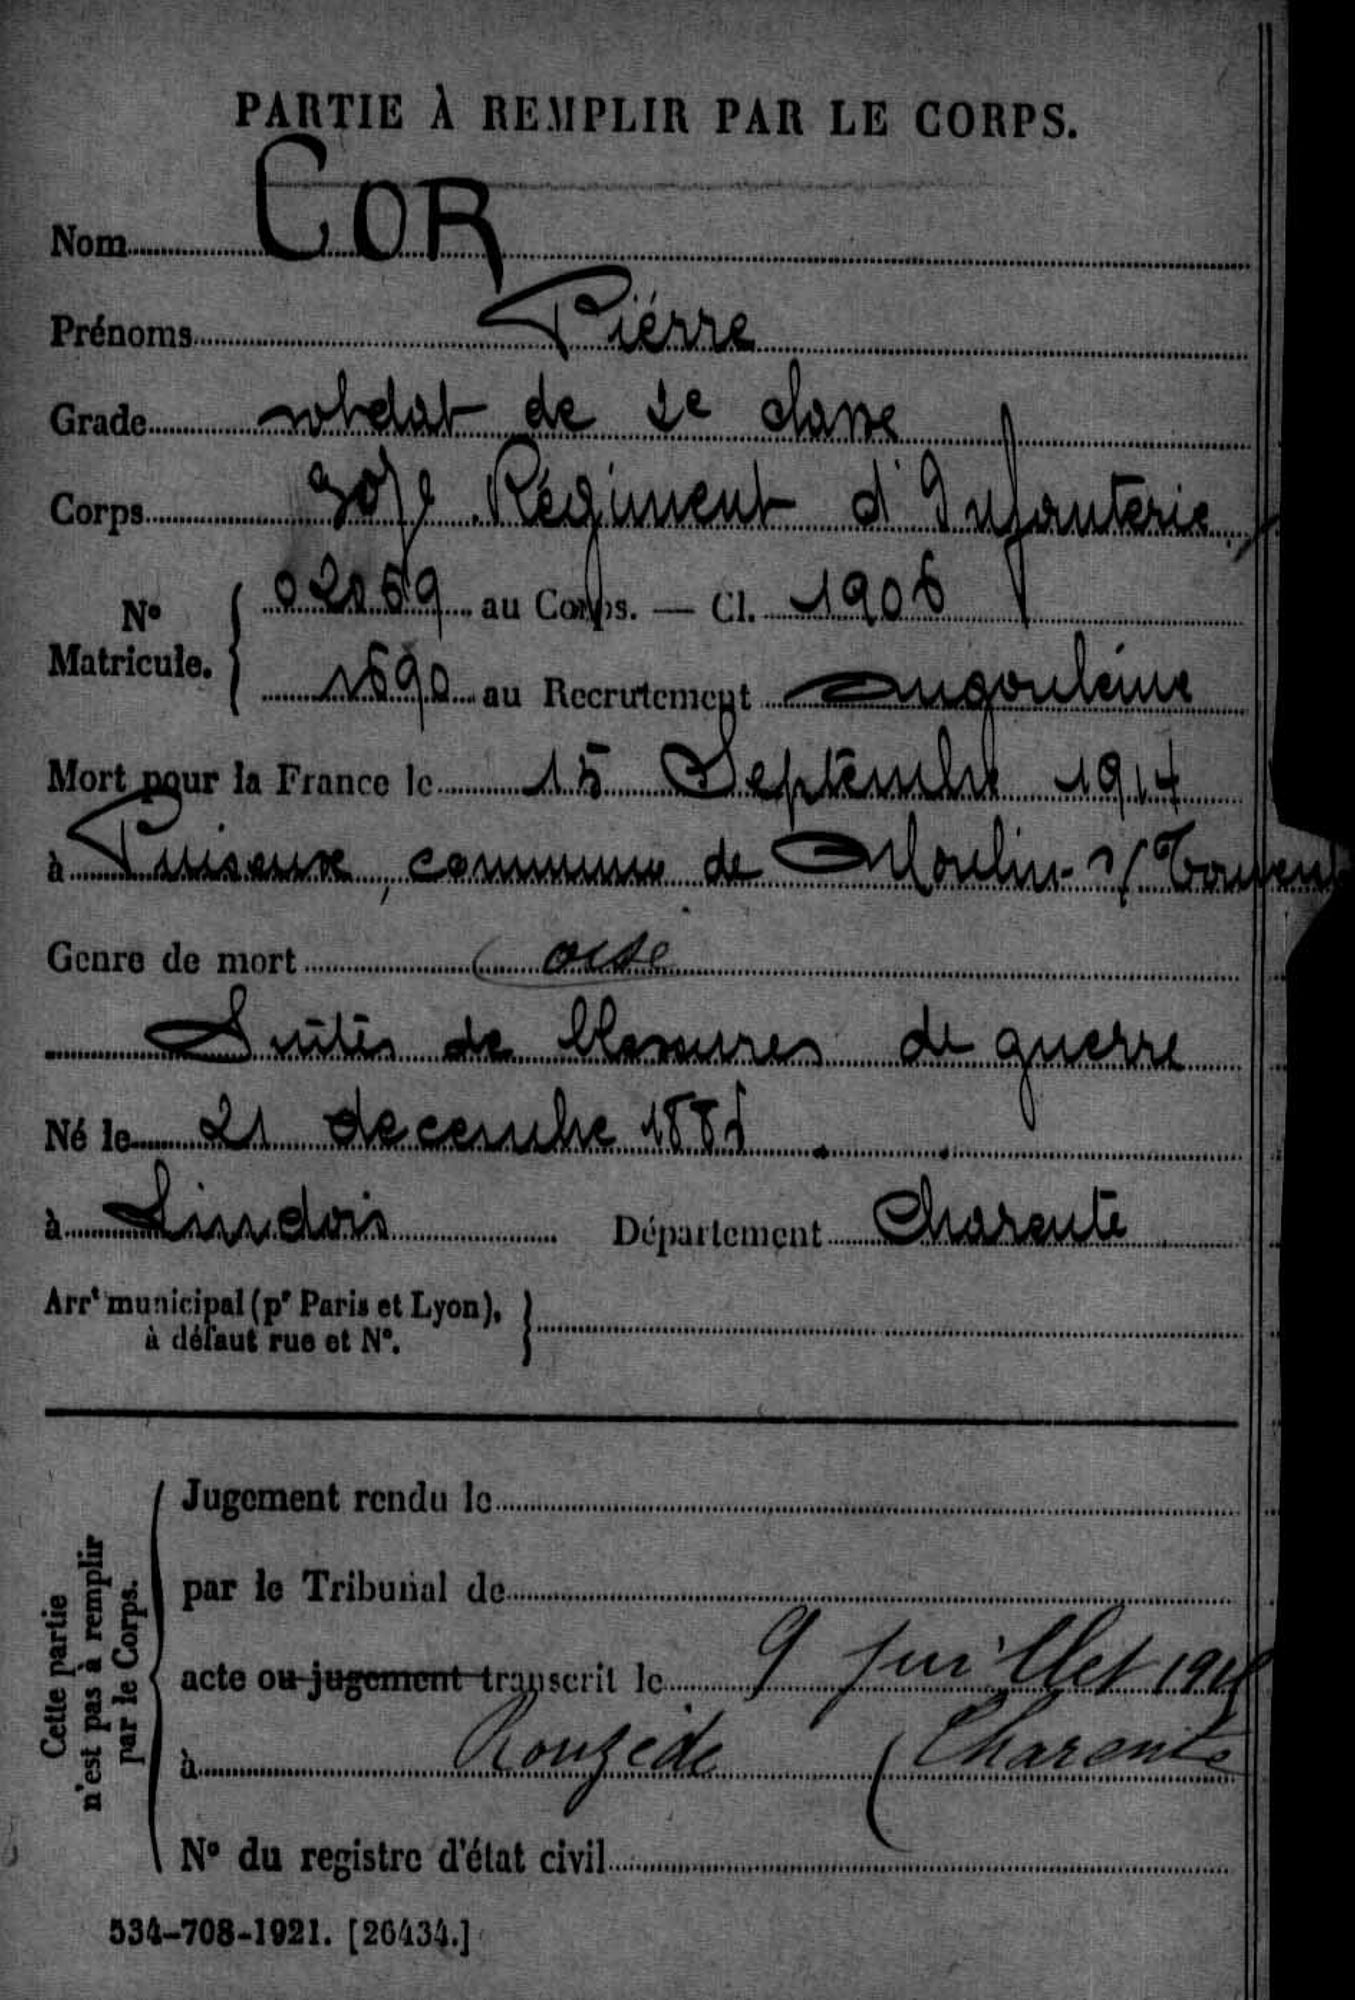 PARTIE À REMPLIR PAR LE CORPS.
Nom COR
Prénoms Pierre
Grade soldat de 2e classe
Corps 307e Régiment d'Infanterie
No Matricule. 02069 au Corps. — Cl. 1906
1690 au Recrutement Angoulême
Mort pour la France le 15 Septembre 1914
à Puiseux, commune de Moulin-s/Touvent
Genre de mort (oise
Suites de blessures de guerre
Né le 21 décembre 1886
à Lindois Département Charente
Arrt municipal (pr Paris et Lyon), à défaut rue et No.
Cette partie n'est pas à remplir par le Corps.
Jugement rendu le
par le Tribunal de
acte ou jugement transcrit le 9 juillet
à Rouzède (Charente
No du registre d'état civil
534-708-1921. [26434.]